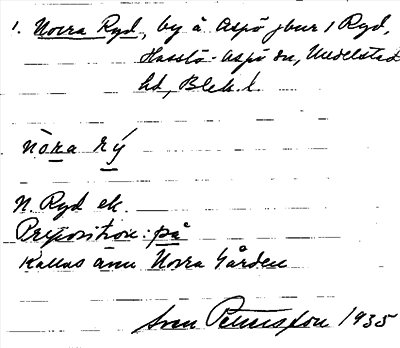 1. Norra Ryd, by å Aspö jbur 1 Ryd,
Hasslö-Aspö sn, Medelstad
hd, Blek. l.
nòra rý
N. Ryd ek.
Preposition: på
Kallas ännu Norra Gården
Sven 1935